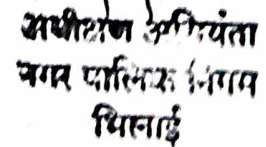 अधीक्षण अभियंता
नगर पालिक निगम
भिलाई